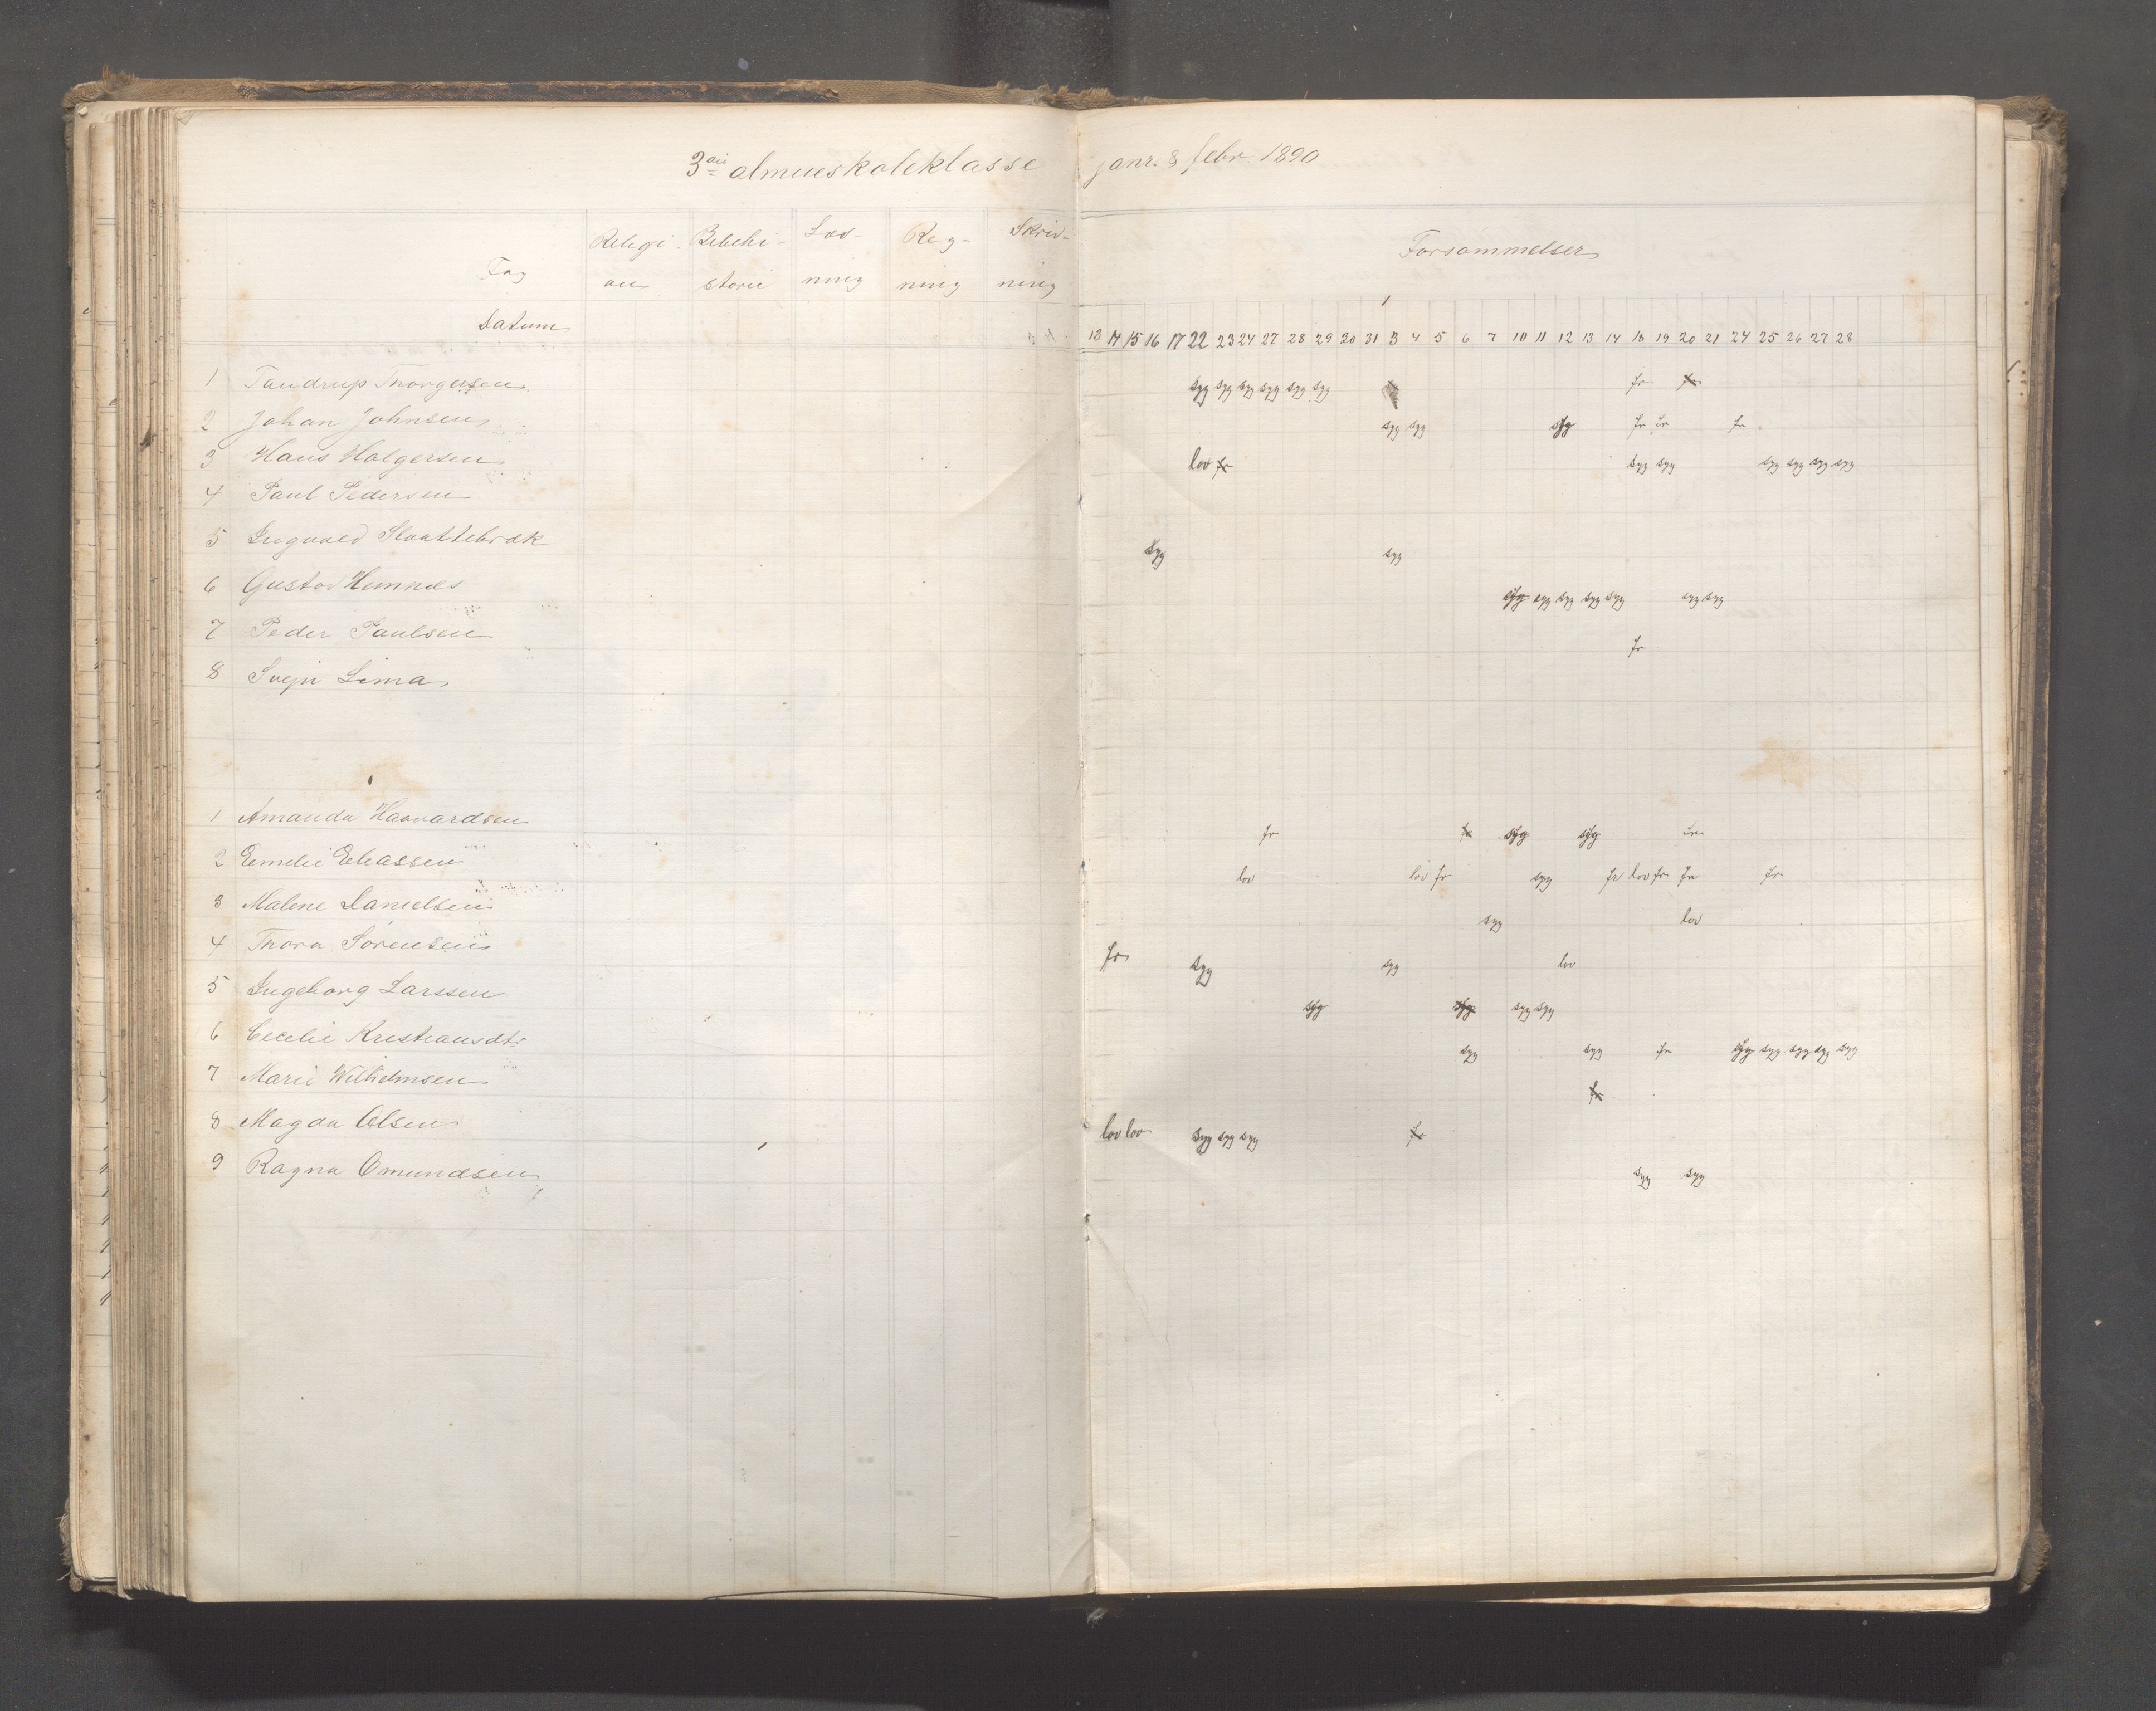 3die almueskoleklasse janr. & febr. 1890
Fag Religi- Bibelhi- Læs- Reg- Skriv- Forsømmelser
on storie ning ning ning
Datum 13 14 15 16 17 22 23 24 27 28 29 30 31 3 4 5 6 7 10 11 12 13 14 18 19 20 21 24 25 26 27 28
1 Tandrup Thorgersen syg syg syg syg syg syg fr fr
2 Johan Johnsen syg syg syg fr fr fr
3 Hans Holgersen lov fr syg syg syg syg syg syg
4 Paul Pedersen
5 Ingvald Slaattebræk syg syg
6 Gustav Hemnæs syg syg syg syg syg syg syg
7 Peder Paulsen fr
8 Svejn Lima
1 Amanda Haavardsen fr fr syg syg fr
2 Emelie Eliassen lov lov fr syg fr lov fr fr fr
3 Malene Danielsen syg lov
4 Thora Sørensen fr syg syg lov
5 Ingeborg Larssen syg syg syg syg
6 Cecelie Kristiansdtr syg syg fr syg syg syg syg syg
7 Marie Wilhelmsen fr
8 Magda Olsen lov lov syg syg syg fr
9 Ragna Omundsen syg syg